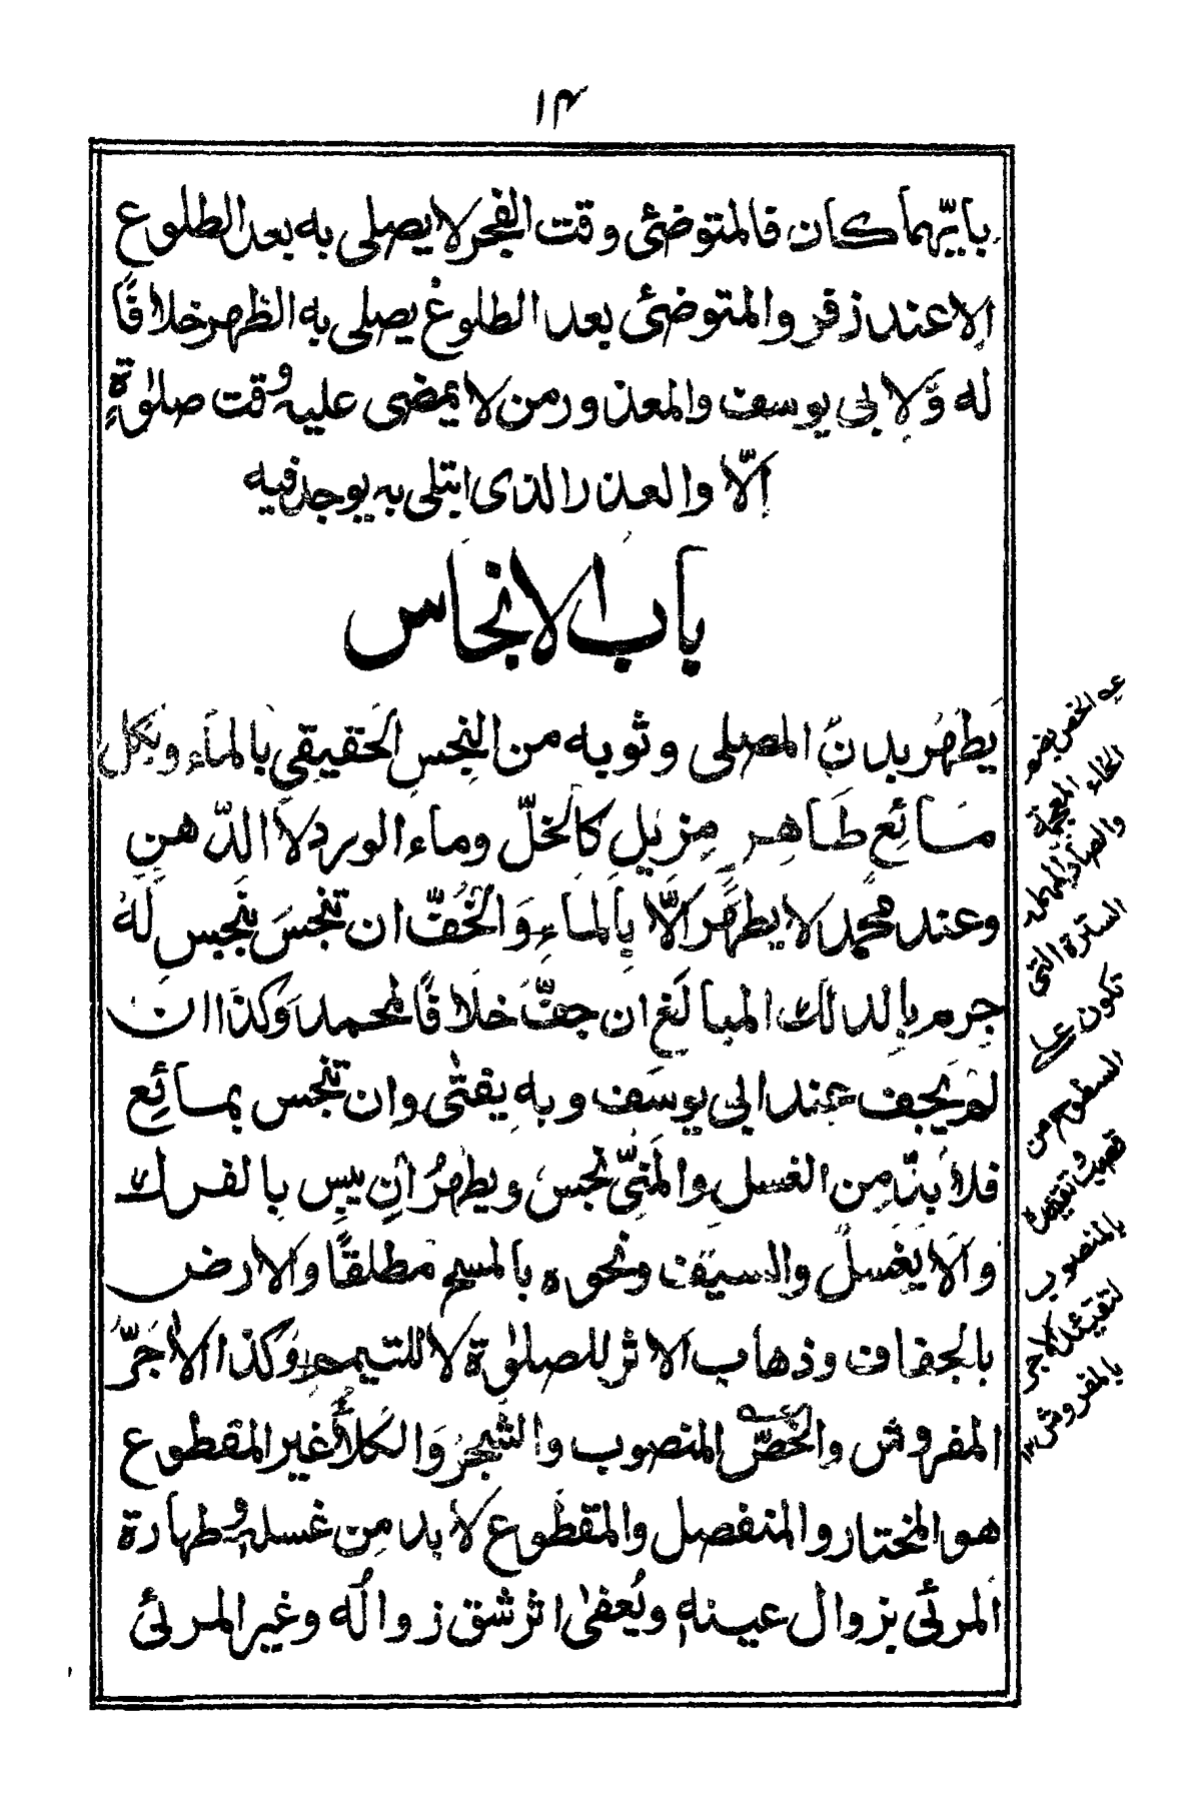 ۱۴
بايّهما كان فالمتوضئ وقت الفجر لا يصلى به بعد الطلوع
الا عند زفر والمتوضئ بعد الطلوع يصلى به الظهر خلافًا
له وَلابى يوسف والمعذور من لا يمضى عليه وقت صلوٰةٍ
اِلّا والعذر الذى ابتلى به يوجد فيه
باب الانجاس
يَطهُر بدنُ المصلى وثوبه من النجِسِ الحَقيقِي بالماء وبكل
مَائِع طَاهِرٍ مِزيلٍ كالخلّ وماء الورد لا الدّهنِ
وعند محمد لا يطهّر اِلّا بالماءِ وَالخُفّ ان تنجسَ بنجِس لَهُ
جِرم بِالدلك المبالَغ ان جفّ خلافًا لمحمد وَكذا ان
لم يَجف عند ابى يوسف وبه يفتٰى وان تنجس بمائِع
فلا بدّ مِن الغسل والمَنِىّ نجس ويطهرُ اِن يبِس بِالفرك
وَالا يُغسلُ والسيف ونحوه بالمسح مطلقًا والارض
بالجفاف وذهاب الاثر للصلوٰة لا للتيمم وكذا الاٰجرُّ
المفروش والخُصّ المنصوب والشجرُ وَالكلأُ غير المقطوع
هو المختار والمنفصل والمقطوع لا بد مِن غسله وطهارة
المرئى بزوال عينهٖ ويُعفىٰ اثر شق زوالُه وغير المرئى
عه الخص بضم
الخاء المعجمة
والصاد المهملة
السترة التى
تكون على
السطوح من
قصب وتقييده
بالمنصوب
لتقييد الاجر
بالمفروش ۱۲